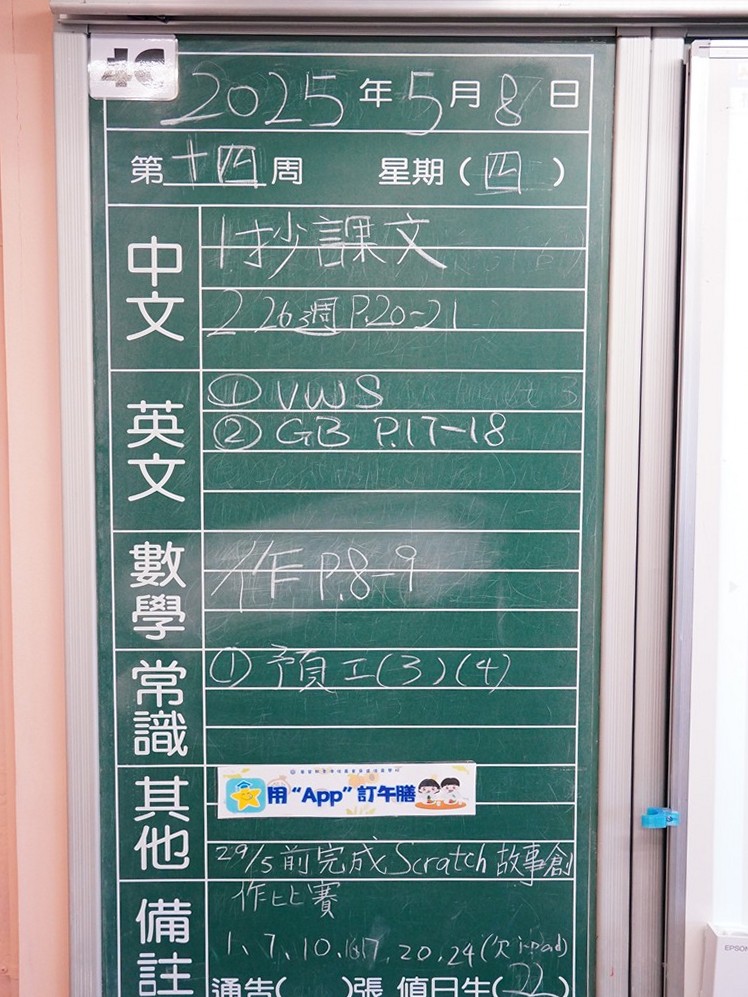 4C
2025年5月8日
第十四周 星期(四)
中文
1 抄課文
2 26 3週 P.20-21
英文
① VWS
② GB P.17-18
數學
作 P.8-9
常識
① 預工(3)(4)
其他
用“App”訂午膳
29/5前完成Scratch故事創
作比賽
備註
1、7、10、17、20、24(欠ipad)
通告( )張 值日生(22)
EPSON